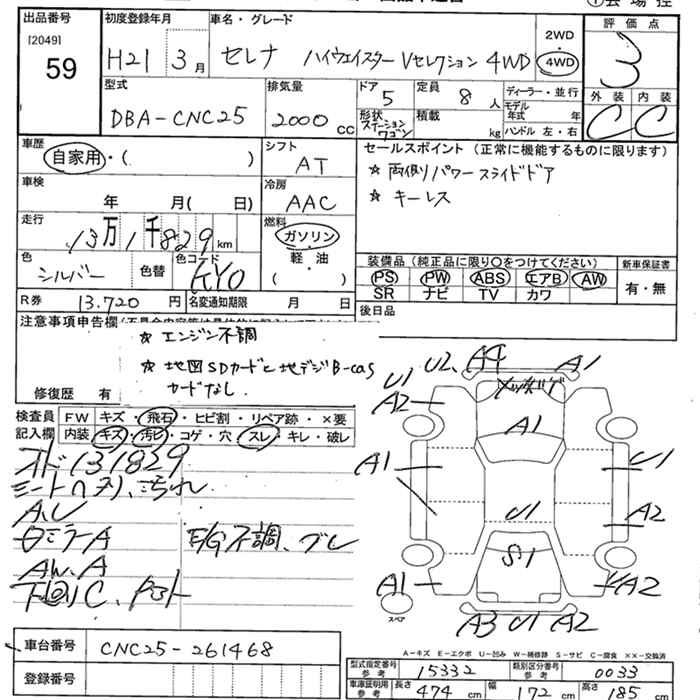 出品番号
[2049]
59
初度登録年月
H21 3月
車名・グレード
セレナ ハイウェイスター Vセレクション 4WD
2WD
4WD
評価点
3
外装 内装
C C
型式
DBA-CNC25
排気量
2000 CC
ドア
5
定員
8 人
形状
ステーション
ワゴン
積載
kg
ディーラー・並行
モデル
年式 年
ハンドル 左・右
車歴
自家用・( )
シフト
AT
車検
年 月( 日)
冷房
AAC
走行
13万1千829km
燃料
ガソリン
軽・油
( )
色
シルバー
色替
色コード
KY0
R券 13.720 円
名変通知期限 月 日
セールスポイント (正常に機能するものに限ります)
☆ 両側パワースライドドア
☆ キーレス
装備品 (純正品に限り○をつけてください)
PS PW ABS エアB AW
SR ナビ TV カワ
新車保証書
有・無
後日品
注意事項申告欄
☆ エンジン不調
☆ 地図SDカードと地デジB-cas
カードなし
修復歴 有
検査員
記入欄
FW キズ・飛石・ヒビ割・リペア跡・×要
内装 キズ・汚れ・コゲ・穴・スレ・キレ・破レ
131829
シートヘタリ、汚れ
E/G不調、ブレ
AW.A
下回りC、
U1 U2 A4 A1
A2
A1
A1 U1
U1 A2
S1
A1 A2
A3 U1 A2
スペア
A-キズ E-エクボ U-凹み W-補修跡 S-サビ C-腐食 ××-交換済
車台番号 CNC25-261468
登録番号
型式指定番号
参考
15332
類別区分番号
参考
0033
車庫証明用
参考
長さ 474 cm 幅 172 cm 高さ 185 cm